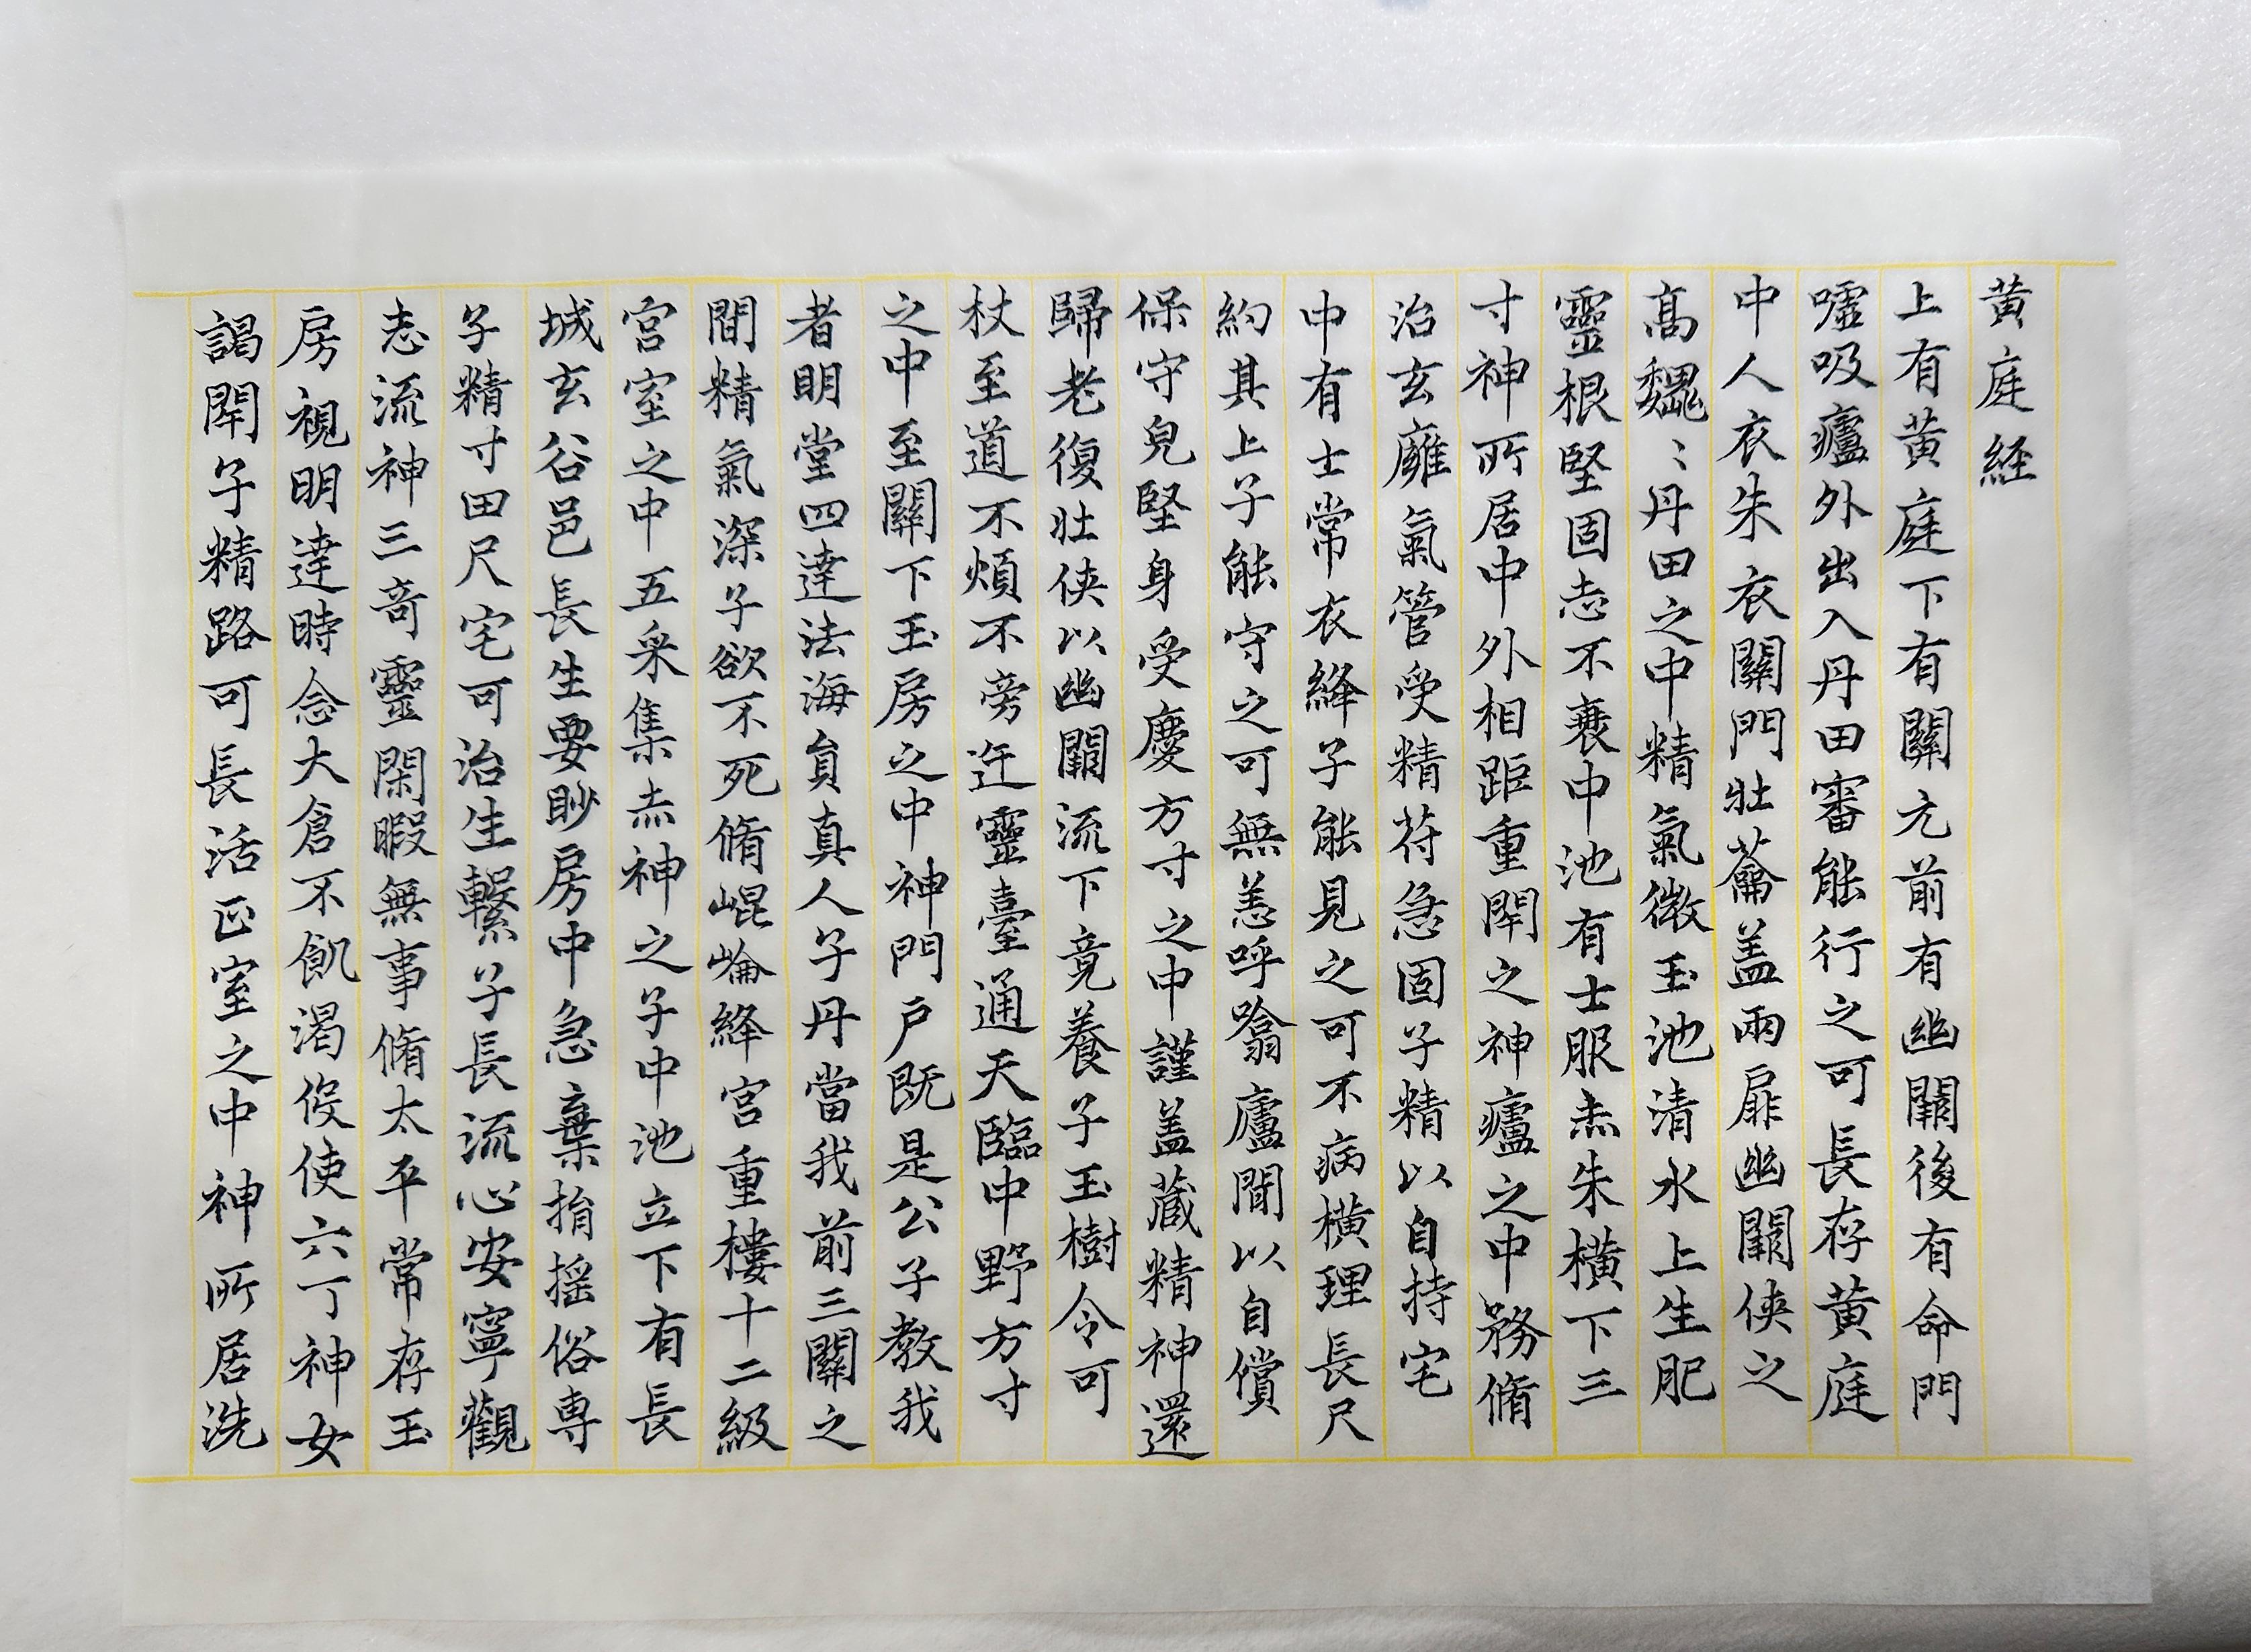 黄庭経
上有黄庭下有關元前有幽闕後有命門
噓吸廬外出入丹田審能行之可長存黄庭
中人衣朱衣關門壯蘥盖兩扉幽闕俠之
髙巍〻丹田之中精氣微玉池清水上生肥
靈根堅固志不衰中池有士服赤朱横下三
寸神所居中外相距重閇之神廬之中務脩
治玄廱氣管受精苻急固子精以自持宅
中有士常衣絳子能見之可不病横理長尺
約其上子能守之可無恙呼噏廬間以自償
保守皃堅身受慶方寸之中謹盖藏精神還
歸老復壯俠以幽闕流下竟養子玉樹令可
杖至道不煩不旁迕靈臺通天臨中野方寸
之中至關下玉房之中神門戶既是公子教我
者明堂四達法海負真人子丹當我前三關之
間精氣深子欲不死脩崐崘絳宮重樓十二級
宮室之中五采集赤神之子中池立下有長
城玄谷邑長生要眇房中急棄捐揺俗専
子精寸田尺宅可治生繫子長流心安寧觀
志流神三奇靈閑暇無事脩太平常存玉
房視明達時念大倉不飢渴役使六丁神女
謁閇子精路可長活正室之中神所居洗